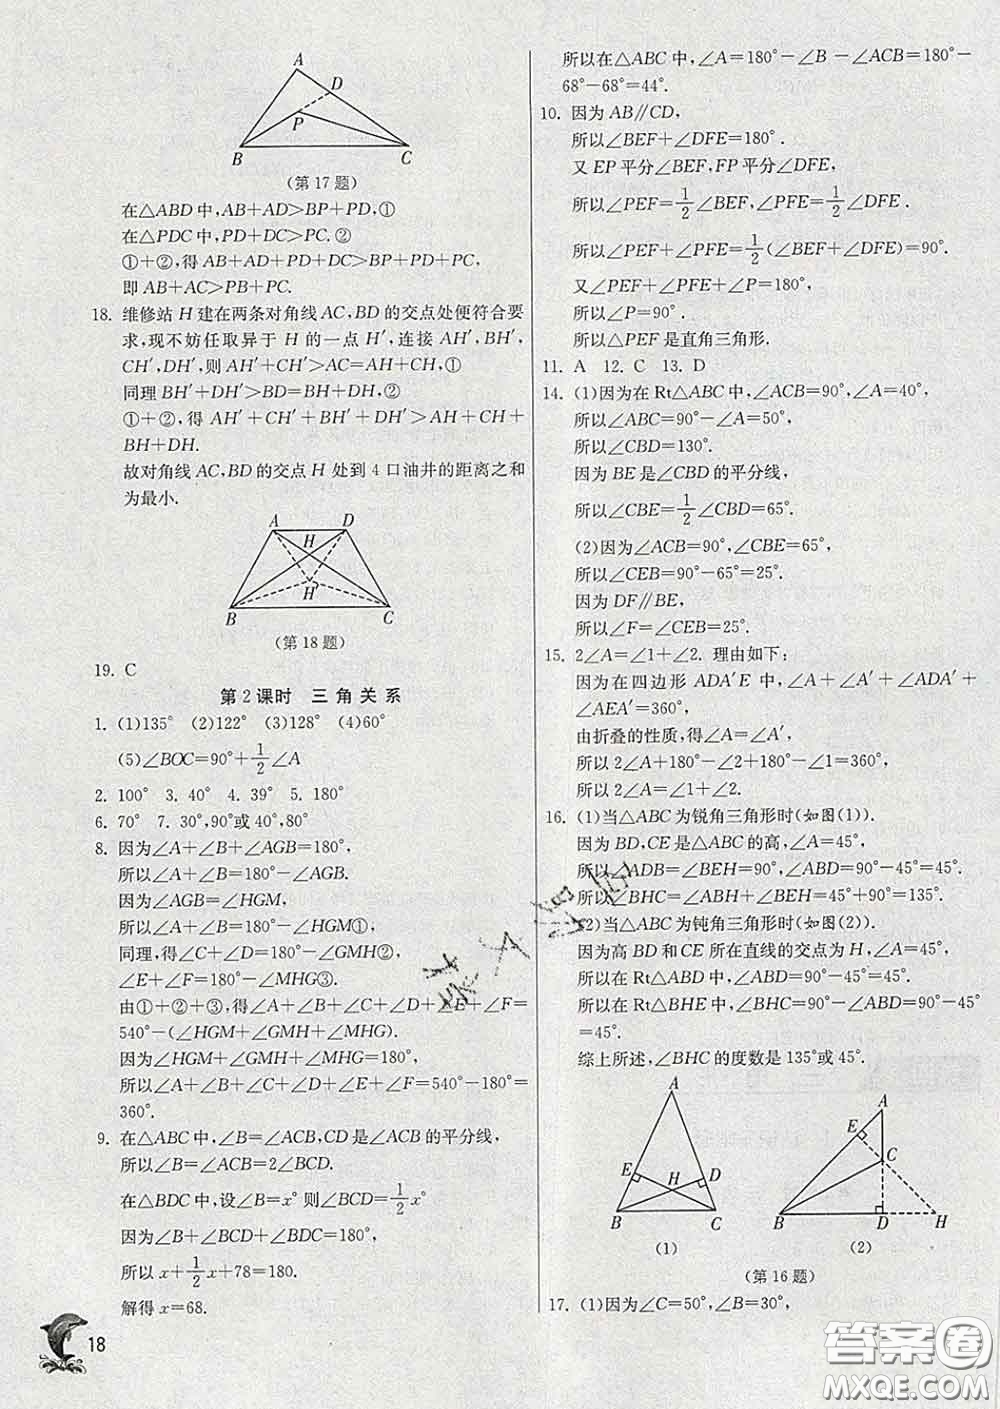 A
D
P
B
C
(第17题)
在△ABD中,AB+AD>BP+PD,①
在△PDC中,PD+DC>PC.②
①+②,得 AB+AD+PD+DC>BP+PD+PC,
即 AB+AC>PB+PC.
18. 维修站 H 建在两条对角线 AC,BD的交点处便符合要
求,现不妨任取异于 H 的一点 H′,连接 AH′,BH′,
CH′,DH′,则 AH′+CH′>AC=AH+CH,①
同理 BH′+DH′>BD=BH+DH,②
①+②,得 AH′+CH′+BH′+DH′>AH+CH+
BH+DH.
故对角线 AC,BD 的交点 H 处到 4 口油井的距离之和
为最小.
A
D
H
H′
B
C
(第18题)
19. C
第2课时 三角关系
1. (1)135° (2)122° (3)128° (4)60°
(5)∠BOC=90°+1/2∠A
2. 100° 3. 40° 4. 39° 5. 180°
6. 70° 7. 30°,90°或40°,80°
8. 因为∠A+∠B+∠AGB=180°,
所以∠A+∠B=180°-∠AGB.
因为∠AGB=∠HGM,
所以∠A+∠B=180°-∠HGM①,
同理,得∠C+∠D=180°-∠GMH②,
∠E+∠F=180°-∠MHG③.
由①+②+③,得∠A+∠B+∠C+∠D+∠E+∠F=
540°-(∠HGM+∠GMH+∠MHG).
因为∠HGM+∠GMH+∠MHG=180°,
所以∠A+∠B+∠C+∠D+∠E+∠F=540°-180°=
360°.
9. 在△ABC中,∠B=∠ACB,CD是∠ACB的平分线,
所以∠B=∠ACB=2∠BCD.
在△BDC中,设∠B=x°则∠BCD=1/2x°
因为∠B+∠BCD+∠BDC=180°,
所以 x+1/2x+78=180.
解得 x=68.
18
所以在△ABC中,∠A=180°-∠B-∠ACB=180°-
68°-68°=44°.
10. 因为 AB∥CD,
所以∠BEF+∠DFE=180°.
又 EP 平分∠BEF,FP 平分∠DFE,
所以∠PEF=1/2∠BEF,∠PFE=1/2∠DFE.
所以∠PEF+∠PFE=1/2(∠BEF+∠DFE)=90°.
又∠PEF+∠PFE+∠P=180°,
所以∠P=90°.
所以△PEF是直角三角形.
11. A 12. C 13. D
14. (1)因为在 Rt△ABC中,∠ACB=90°,∠A=40°,
所以∠ABC=90°-∠A=50°.
所以∠CBD=130°.
因为 BE是∠CBD的平分线,
所以∠CBE=1/2∠CBD=65°.
(2)因为∠ACB=90°,∠CBE=65°,
所以∠CEB=90°-65°=25°.
因为 DF∥BE,
所以∠F=∠CEB=25°.
15. 2∠A=∠1+∠2. 理由如下:
因为在四边形 ADA′E 中,∠A+∠A′+∠ADA′+
∠AEA′=360°,
由折叠的性质,得∠A=∠A′.
所以 2∠A+180°-∠2+180°-∠1=360°,
所以 2∠A=∠1+∠2.
16. (1)当△ABC为锐角三角形时(如图(1)).
因为 BD,CE 是△ABC的高,∠A=45°,
所以∠ADB=∠BEH=90°,∠ABD=90°-45°=45°.
所以∠BHC=∠ABD+∠BEH=45°+90°=135°.
(2)当△ABC为钝角三角形时(如图(2)).
因为高 BD 和 CE 所在直线的交点为 H,∠A=45°,
所以在 Rt△ABD 中,∠ABD=90°-45°=45°.
所以在 Rt△BHE 中,∠BHC=90°-∠ABD=90°-45°
=45°.
综上所述,∠BHC的度数是135°或45°.
A
E
H
D
B
C
(1)
A
E
C
B
D
H
(2)
(第16题)
17. (1)因为∠C=50°,∠B=30°,
答案圈
MXQE.COM